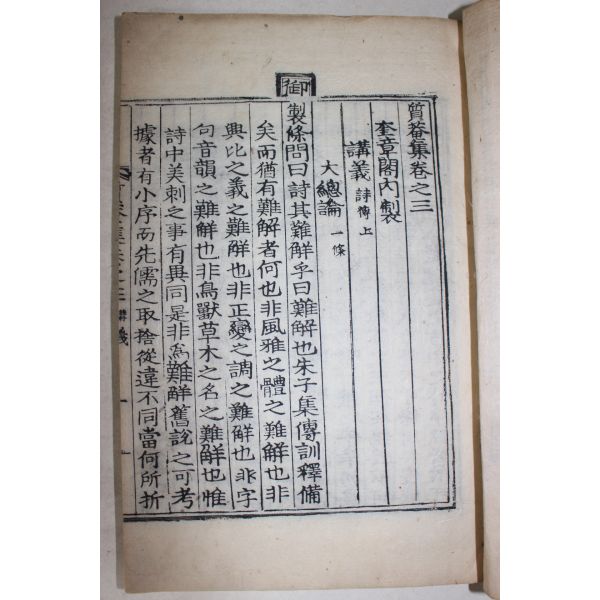 質菴集卷之三
奎章閣內製
講義 詩傳上
大總論 一條
御製條問曰詩其難解乎曰難解也朱子集傳訓釋備
矣而猶有難解者何也非風雅之體之難解也非
興比之義之難解也非正變之調之難解也非字
句音韻之難解也非鳥獸草木之名之難解也惟
詩中美刺之事有異同是非爲難解舊說之可考
據者有小序而先儒之取捨從違不同當何所折
集卷之三 講義 一